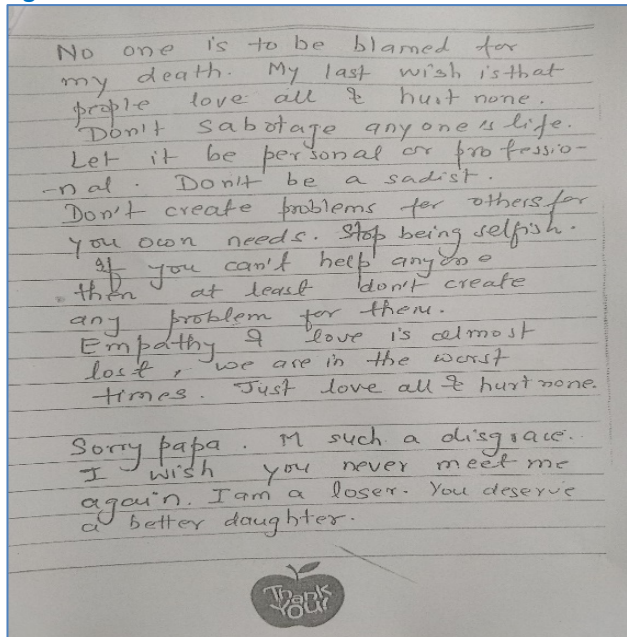 No one is to be blamed for
my death. My last wish is that
people love all & hurt none.
Don't sabotage anyone's life.
Let it be personal or professio-
-nal. Don't be a sadist.
Don't create problems for others for
you own needs. Stop being selfish.
If you can't help anyone
then at least don't create
any problem for them.
Empathy & love is almost
lost, we are in the worst
times. Just love all & hurt none.
Sorry papa. M such a disgrace.
I wish you never meet me
again. I am a loser. You deserve
a better daughter.
Thank
You!